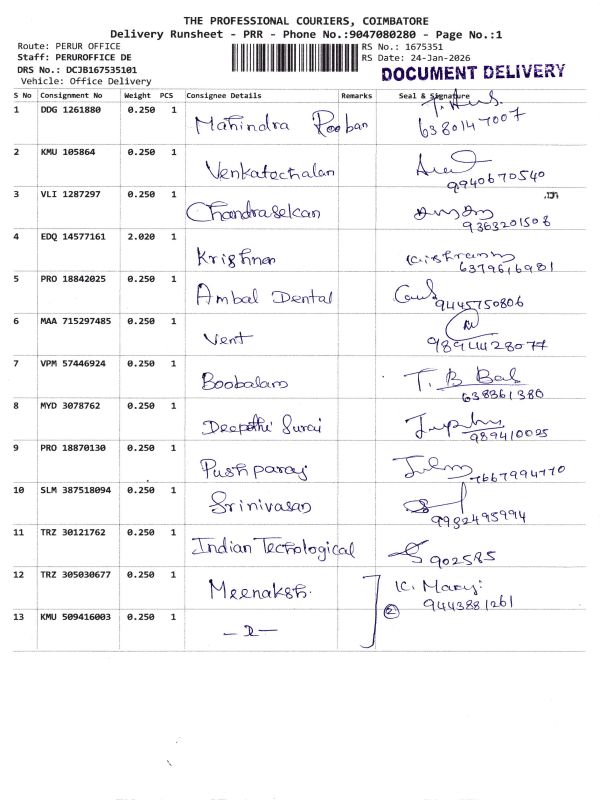 THE PROFESSIONAL COURIERS, COIMBATORE
Delivery Runsheet - PRR - Phone No.:9047080280 - Page No.:1
Route: PERUR OFFICE
RS No.: 1675351
Staff: PERUROFFICE DE
RS Date: 24-Jan-2026
DRS No.: DCJB167535101
DOCUMENT DELIVERY
Vehicle: Office Delivery
S No Consignment No Weight PCS Consignee Details Remarks Seal & Signature
1 DDG 1261880 0.250 1 Mahindra Pooban
6380147007
2 KMU 105864 0.250 1 Venkatachalan
9940670540
3 VLI 1287297 0.250 1 Chandrasekan
9363201508
4 EDQ 14577161 2.020 1 Krishnan
6379616981
5 PRO 18842025 0.250 1 Ambal Dental
9445750806
6 MAA 715297485 0.250 1 Vent
9894428077
7 VPM 57446924 0.250 1 Boobalam T. B Bal
638361380
8 MYD 3078762 0.250 1 Deepthi Suraj
989410025
9 PRO 18870130 0.250 1 Pushparaj
7667994770
10 SLM 387518094 0.250 1 Srinivasan
9932495994
11 TRZ 30121762 0.250 1 Indian Techological
902585
12 TRZ 305030677 0.250 1 Meenaksh. K. Mary
2 9443881261
13 KMU 509416003 0.250 1 -2-